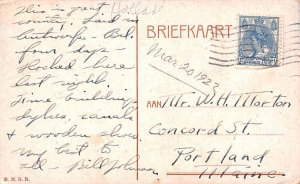 This is great
country. Laid in
Antwerp - Bel.
four days -
Docked here
last night
Fine buildings
dykes, canals
& wooden shoes
My best to
all - Bill Johnson
B. M. S. R.
Holland
BRIEFKAART
Mar 20 1922
AAN Mr. W. H. Morton
Concord St.
Portland
Maine